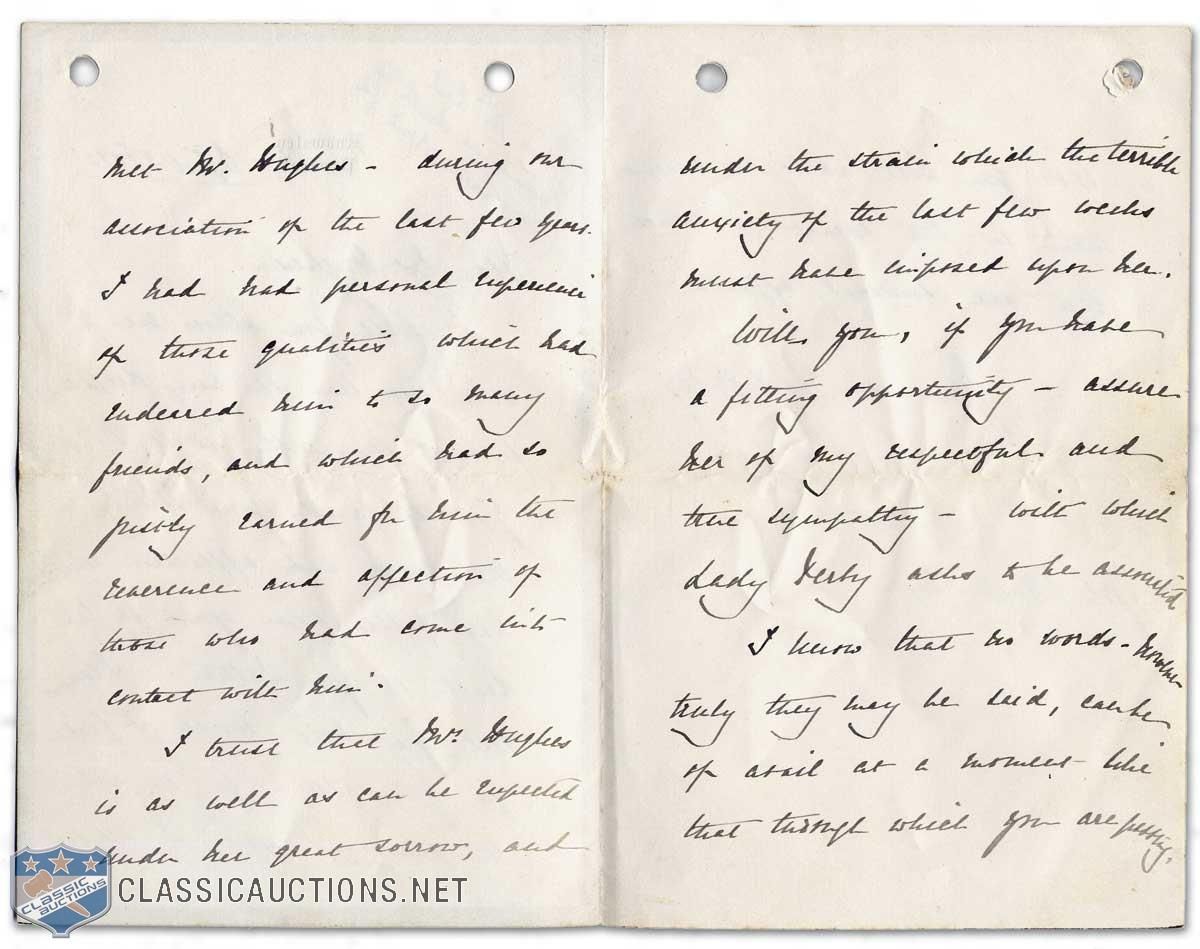 met Mr. Hughes - during our
association of the last few years.
I had had personal experience
of those qualities which had
endeared him to so many
friends, and which had so
justly earned for him the
reverence and affection of
those who had come into
contact with him.
I trust that Mrs Hughes
is as well as can be expected
under her great sorrow, and
under the strain which the terrible
anxiety of the last few weeks
must have imposed upon her.
Will you, if you have
a fitting opportunity - assure
her of my respectful and
true sympathy - with which
Lady Derby asks to be associated
I know that no words - however
truly they may be said, can be
of avail at a moment like
that through which you are passing.
CLASSIC
AUCTIONS
CLASSICAUCTIONS.NET